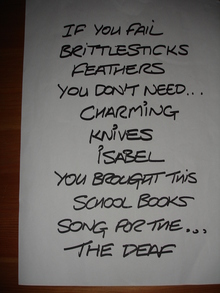 IF YOU FAIL
BRITTLESTICKS
FEATHERS
YOU DON'T NEED...
CHARMING
KNIVES
ISABEL
YOU BROUGHT THIS
SCHOOL BOOKS
SONG FOR THE...
THE DEAF